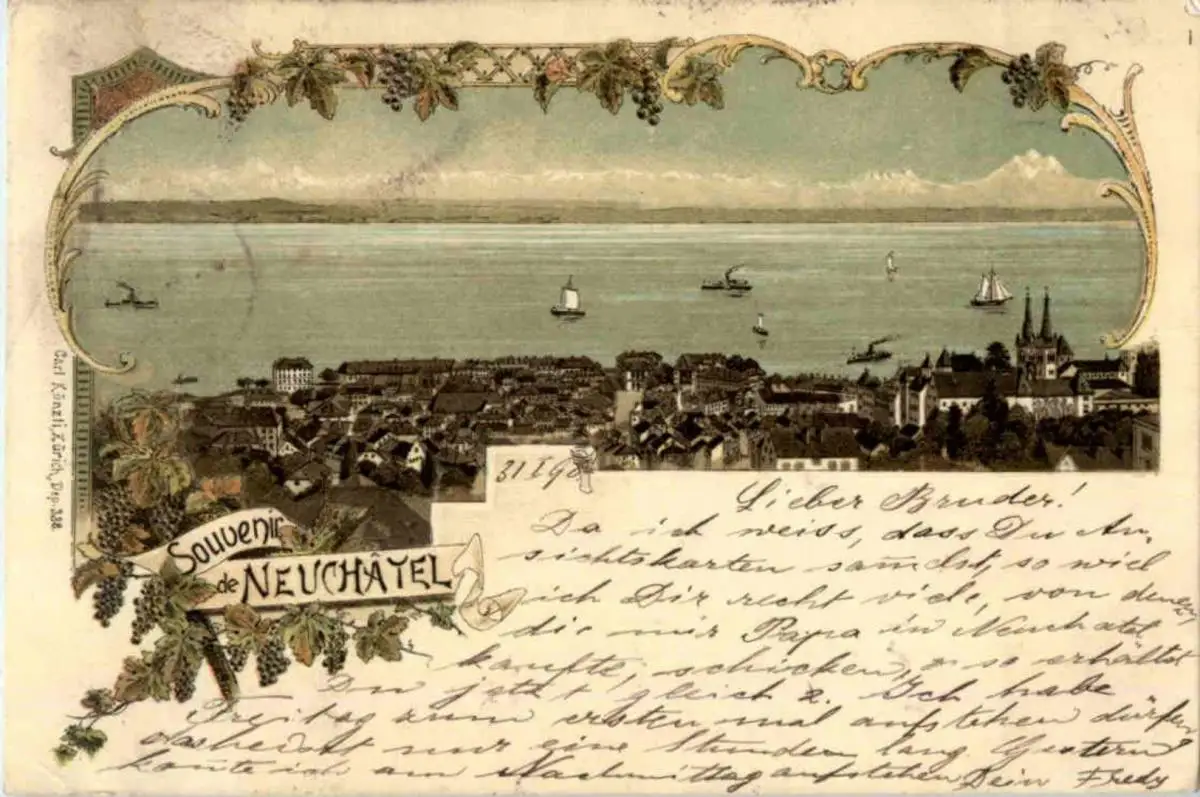 Carl Künzli, Zürich, Dep. 338.
Souvenir
de NEUCHÂTEL
31 I 90
Lieber Bruder!
Da ich weiss, dass Du An-
sichtskarten samelst, so wiel
ich Dir recht viele, von denen
die mir Papa in Neuchatel
kaufte, schicken, so erhältst
Du jetzt gleich 2. Ich habe
Freitag zum ersten mal aufstehen dürfen
dasheisst nur eine Stunden lang Gestern
konte ich am Nachmittag aufstehen Dein Fredy